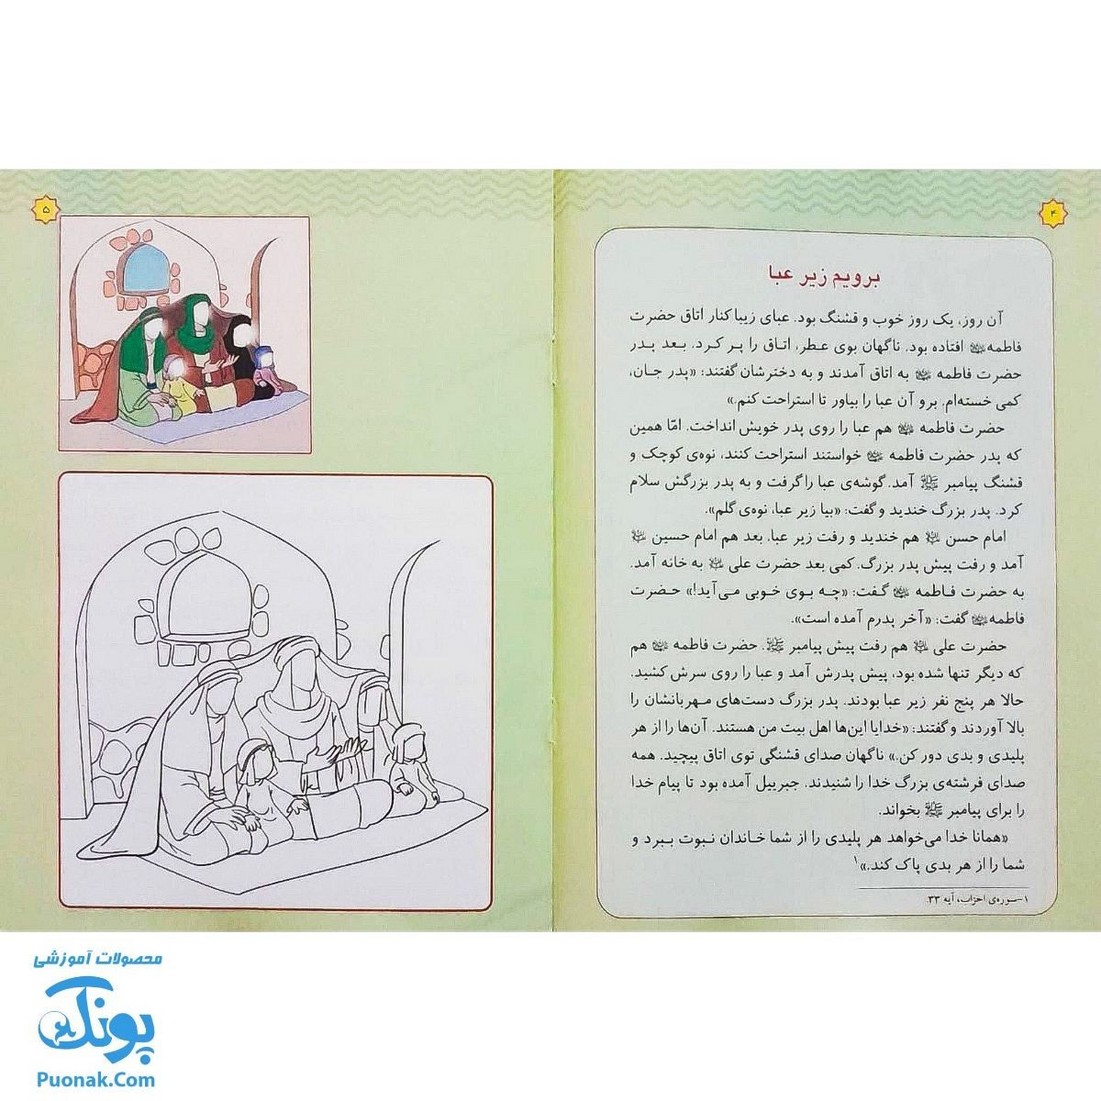 ۴
برویم زیر عبا
آن روز، یک روز خوب و قشنگ بود. عبای زیبا کنار اتاق حضرت
فاطمه افتاده بود. ناگهان بوی عطر، اتاق را پر کرد. بعد پدر
حضرت فاطمه به اتاق آمدند و به دخترشان گفتند: «پدر جان،
کمی خسته‌ام. برو آن عبا را بیاور تا استراحت کنم.»
حضرت فاطمه هم عبا را روی پدر خویش انداخت. امّا همین
که پدر حضرت فاطمه خواستند استراحت کنند، نوه‌ی کوچک و
قشنگ پیامبر ﷺ آمد. گوشه‌ی عبا را گرفت و به پدر بزرگش سلام
کرد. پدر بزرگ خندید و گفت: «بیا زیر عبا، نوه‌ی گلم».
امام حسن هم خندید و رفت زیر عبا. بعد هم امام حسین
آمد و رفت پیش پدر بزرگ. کمی بعد حضرت علی به خانه آمد.
به حضرت فاطمه گفت: «چه بوی خوبی می‌آید!» حضرت
فاطمه گفت: «آخر پدرم آمده است».
حضرت علی هم رفت پیش پیامبر ﷺ. حضرت فاطمه هم
که دیگر تنها شده بود، پیش پدرش آمد و عبا را روی سرش کشید.
حالا هر پنج نفر زیر عبا بودند. پدر بزرگ دست‌های مهربانشان را
بالا آوردند و گفتند: «خدایا این‌ها اهل بیت من هستند. آن‌ها را از هر
پلیدی و بدی دور کن.» ناگهان صدای قشنگی توی اتاق پیچید. همه
صدای فرشته‌ی بزرگ خدا را شنیدند. جبرییل آمده بود تا پیام خدا
را برای پیامبر ﷺ بخواند.
«همانا خدا می‌خواهد هر پلیدی را از شما خاندان نبوت ببرد و
شما را از هر بدی پاک کند.»۱
۱-سوره‌ی احزاب، آیه ۳۳.
۵
محصولات آموزشی
پونک
Puonak.Com